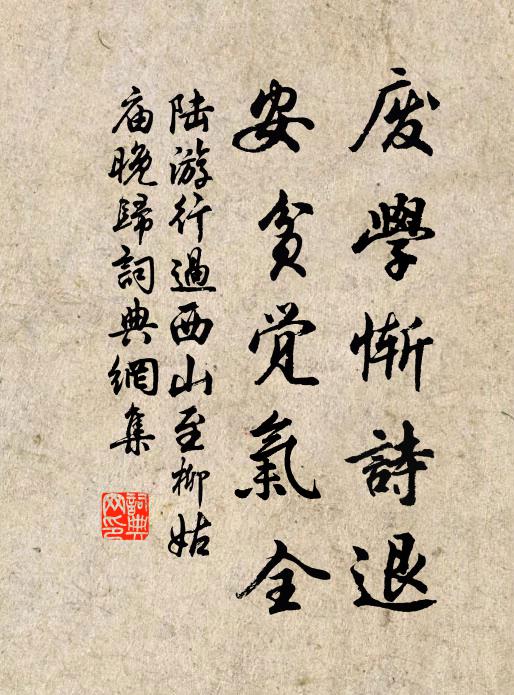 废學惭詩退
安貧覚氣全
陆游行過西山至柳姑
庙晚歸詞典網集
詞典
网印